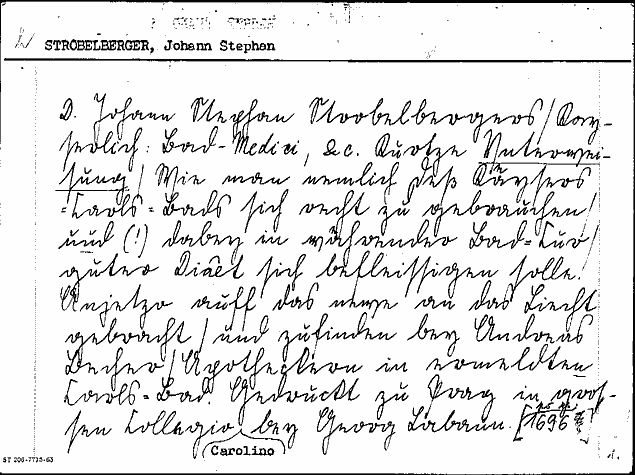 STROBELBERGER, Johann Stephan
D. Johann Stephan Strobelbergers/Kay-
serlich: Bad-Medici, &c. Kurtze Unterwei-
sung/ Wie man nemlich deß Käysers
-Carls-Bads sich recht zu gebrauchen/
und (!) dabey in währender Bad-Cur/
guter Diaet sich befleissigen solle.
Anjetzo auff das newe an das Liecht
gebracht/ und zufinden bey Andreas
Becher/ Apotheckern in ermeldten
Carls-Bad. Gedruckt zu Prag in gros-
sen Collegio bey Georg Labaun. [1696
Carolino
ST 206-7715-63
1.